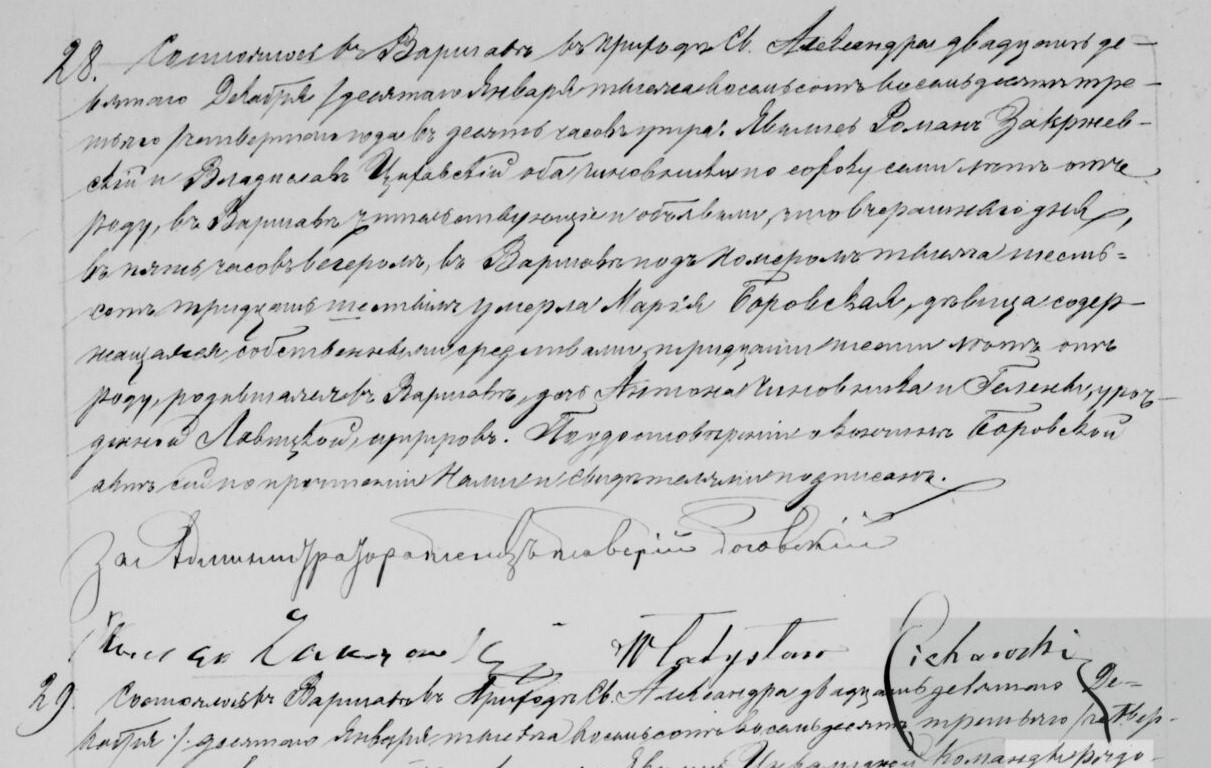 28. Состоялось въ Варшавѣ въ приходѣ Св. Александра двадцать де-
вятаго Декабря /десятаго Января тысяча восемьсотъ восемьдесятъ тре-
тьяго /четвертаго года въ десять часовъ утра. Явились Романъ Закржев-
скій и Владиславъ Цихавскій оба чиновники по сороку семи лѣтъ отъ
роду, въ Варшавѣ жительствующіе и объявили, что вчерашняго дня,
въ пять часовъ вечеромъ, въ Варшавѣ подъ номеромъ тысяча шесть=
сотъ тридцать шестымъ умерла Марія Боровская, дѣвица содер-
жащаяся собственными средствами, тридцати шести лѣтъ отъ
роду, родившаяся въ Варшавѣ, дочь Антона чиновника и Гелены, урож-
денной супруговъ. По удостовѣреніи о кончинѣ Боровской
актъ сей по прочтеніи Нами и свидѣтелями подписанъ.
За Администратора
Władysław Cichawski
29. Состоялось въ Варшавѣ въ Приходѣ Св. Александра двадцать девятаго Де=
кабря /десятаго Января тысяча восемьсотъ восемьдесятъ третьяго /четвер-
Явились Команды